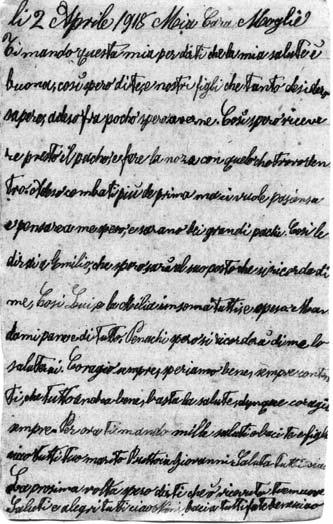 li 2 Aprile 1918 Mia Cara Moglie
Ti mando questa mia per dati che la mia salute è
buona, così spero di te, e nostri figli che tanto desidero
sapere, adeso fra pocho spero averne. Così spero riceve
re presto il pacho, e fare la noza con quelo che trovo den
tro. combati più de prima ma ci vuole pasiensa
e pensare a me spero, e sarano dei grandi pachi. Così le
dirai a Emilio, che spero sarà al suo posto che si ricorda di
me, Così Lui, e la insoma tutti, e spesa
domi pane e di tutto. Penachi spero si ricorderà di me lo
saluterai. Coragio sempre, speriamo bene, sempre conten
ti, che tutto andra bene, basta la salute, dunque coragio
sempre. Per ora ti mando mille saluti e baci te e figli
ciao tutti tuo marito Giovanni. Saluta tutti
La prosima volta spero dirti che ò ricevuto tue nuove
Saluti e alegri tutti ciao baci a tutti